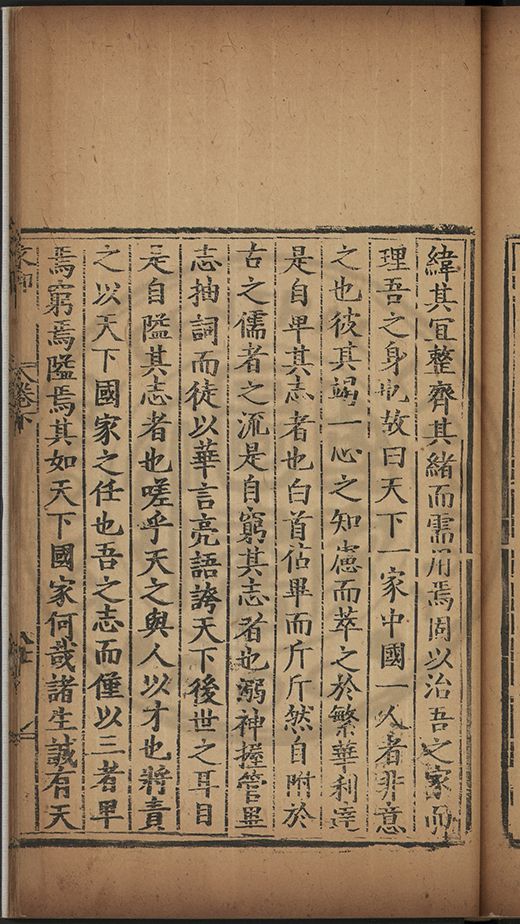 緯其宜整齊其緒而需用焉固以治吾之家而
理吾之身也故曰天下一家中國一人者非意
之也彼其竭一心之知慮而萃之於繁華利達
是自卑其志者也白首佔畢而斤斤然自附於
古之儒者之流是自窮其志者也溺神握管畢
志抽詞而徒以華言亮語誇天下後世之耳目
是自隘其志者也嗟乎天之與人以才也將責
之以天下國家之任也吾之志而僅以三者卑
焉窮焉隘焉其如天下國家何哉諸生誠有天
卷下